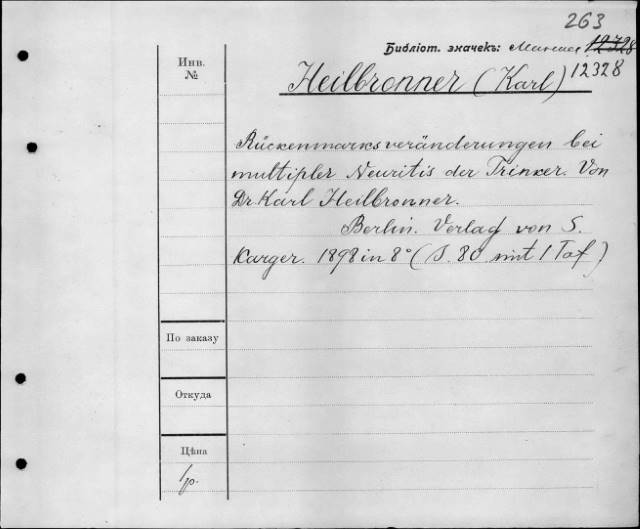 263
Библіот. значекъ: 12328
12328
Инв.
№
Heilbronner (Karl)
Rückenmarksveränderungen bei
multipler Neuritis der Trinker. Von
Dr. Karl Heilbronner.
Berlin. Verlag von S.
Karger. 1898 in 8° (S. 80 mit 1 Taf)
По заказу
Откуда
Цѣна
1р.